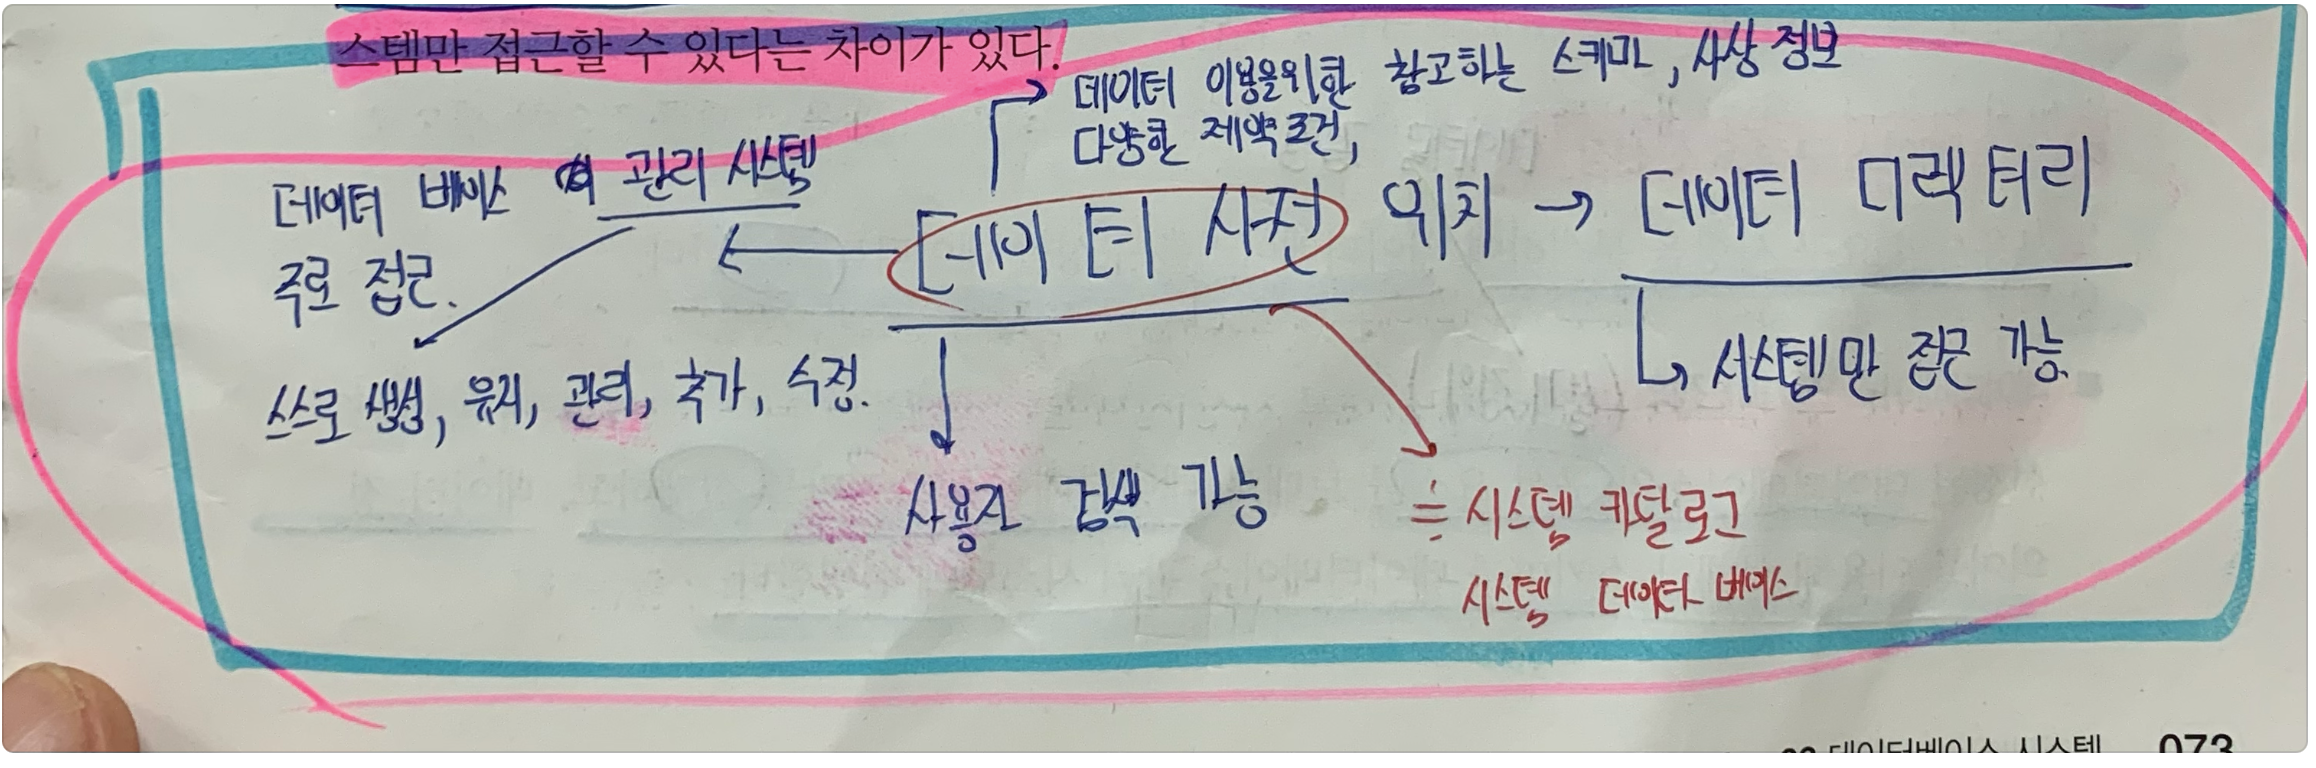 스템만 접근할 수 있다는 차이가 있다.
데이터 이용을위한 참고하는 스키마, 사상 정보
다양한 제약조건,
데이터 베이스 관리 시스템
주로 접근.
데이터 사전 위치 → 데이터 디렉터리
스스로 생성, 유지, 관리, 추가, 수정.
시스템만 접근 가능
사용자 검색 가능
≒ 시스템 카탈로그
시스템 데이터 베이스
데이터베이스 시스템 073